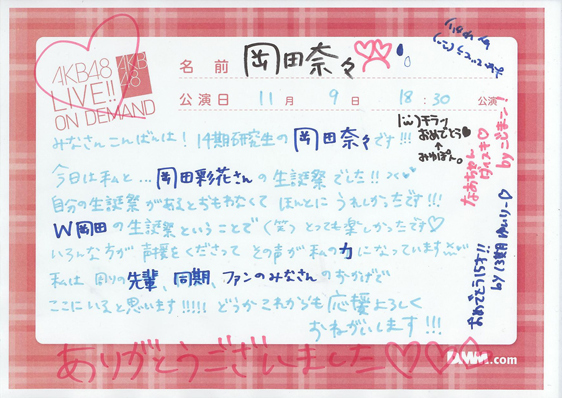 AKB48
LIVE!!
ON DEMAND
AKB
48
名前 岡田奈々
公演日 11月 9日 18:30 公演
みなさんこんばんは! 14期研究生の 岡田奈々です!!!
今日は私と... 岡田彩花さんの生誕祭でした!!
自分の生誕祭があるともおもわなくて ほんとに うれしかったです!!!
W岡田の生誕祭ということで(笑)とっても楽しかったです♡
いろんな方が 声援をくださって その声が 私の力になっています
私は 周りの先輩、同期、ファンのみなさんのおかげで
ここにいると思います!!!!! どうかこれからも応援よろしく
おねがいします!!!
ありがとうございました♡♡♡
DMM.com
キラッ
おめでとう♥
↑
みゆぽん。
なぁちゃん
ダイスキ♡
by こじまこ!
おめでとう15才!!
by 13期